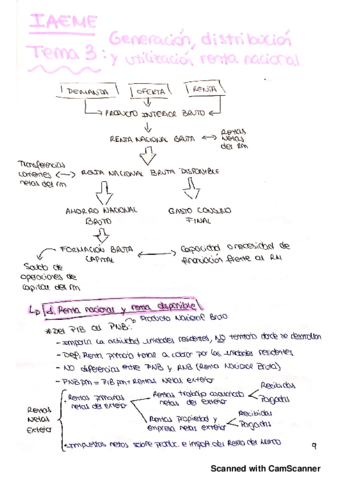 IAEME
Generación, distribución
Tema 3: y utilización renta nacional
DEMANDA OFERTA RENTA
PRODUCTO INTERIOR BRUTO
RENTA NACIONAL BRUTA Rentas
Netas
del RM
Transferencias
corrientes RENTA NACIONAL BRUTA DISPONIBLE
netas del rm
AHORRO NACIONAL GASTO CONSUMO
BRUTO FINAL
FORMACIÓN BRUTA Capacidad o necesidad de
CAPITAL financiación frente al RM
Saldo de
operaciones de
capital del rm
1. Renta nacional y renta disponible
* Del PIB al PNB: Producto Nacional Bruto
- Importa la actividad unidades residentes, NO territorio donde se desarrollan
- Def: Renta primaria total a cobrar por las unidades residentes
- NO diferencias entre PNB y RNB (Renta Nacional Bruta)
- PNB pm = PIB pm + Rentas Netas exterior
Rentas
Netas
Exterior
- Rentas primarias
netas del exterior
Rentas trabajo asalariado
netas del exterior
Recibidas
Pagadas
Rentas propiedad y
empresa netas exterior
Recibidas
Pagadas
- Impuestos netos sobre produc. e import del Resto del Mundo
9
Scanned with CamScanner